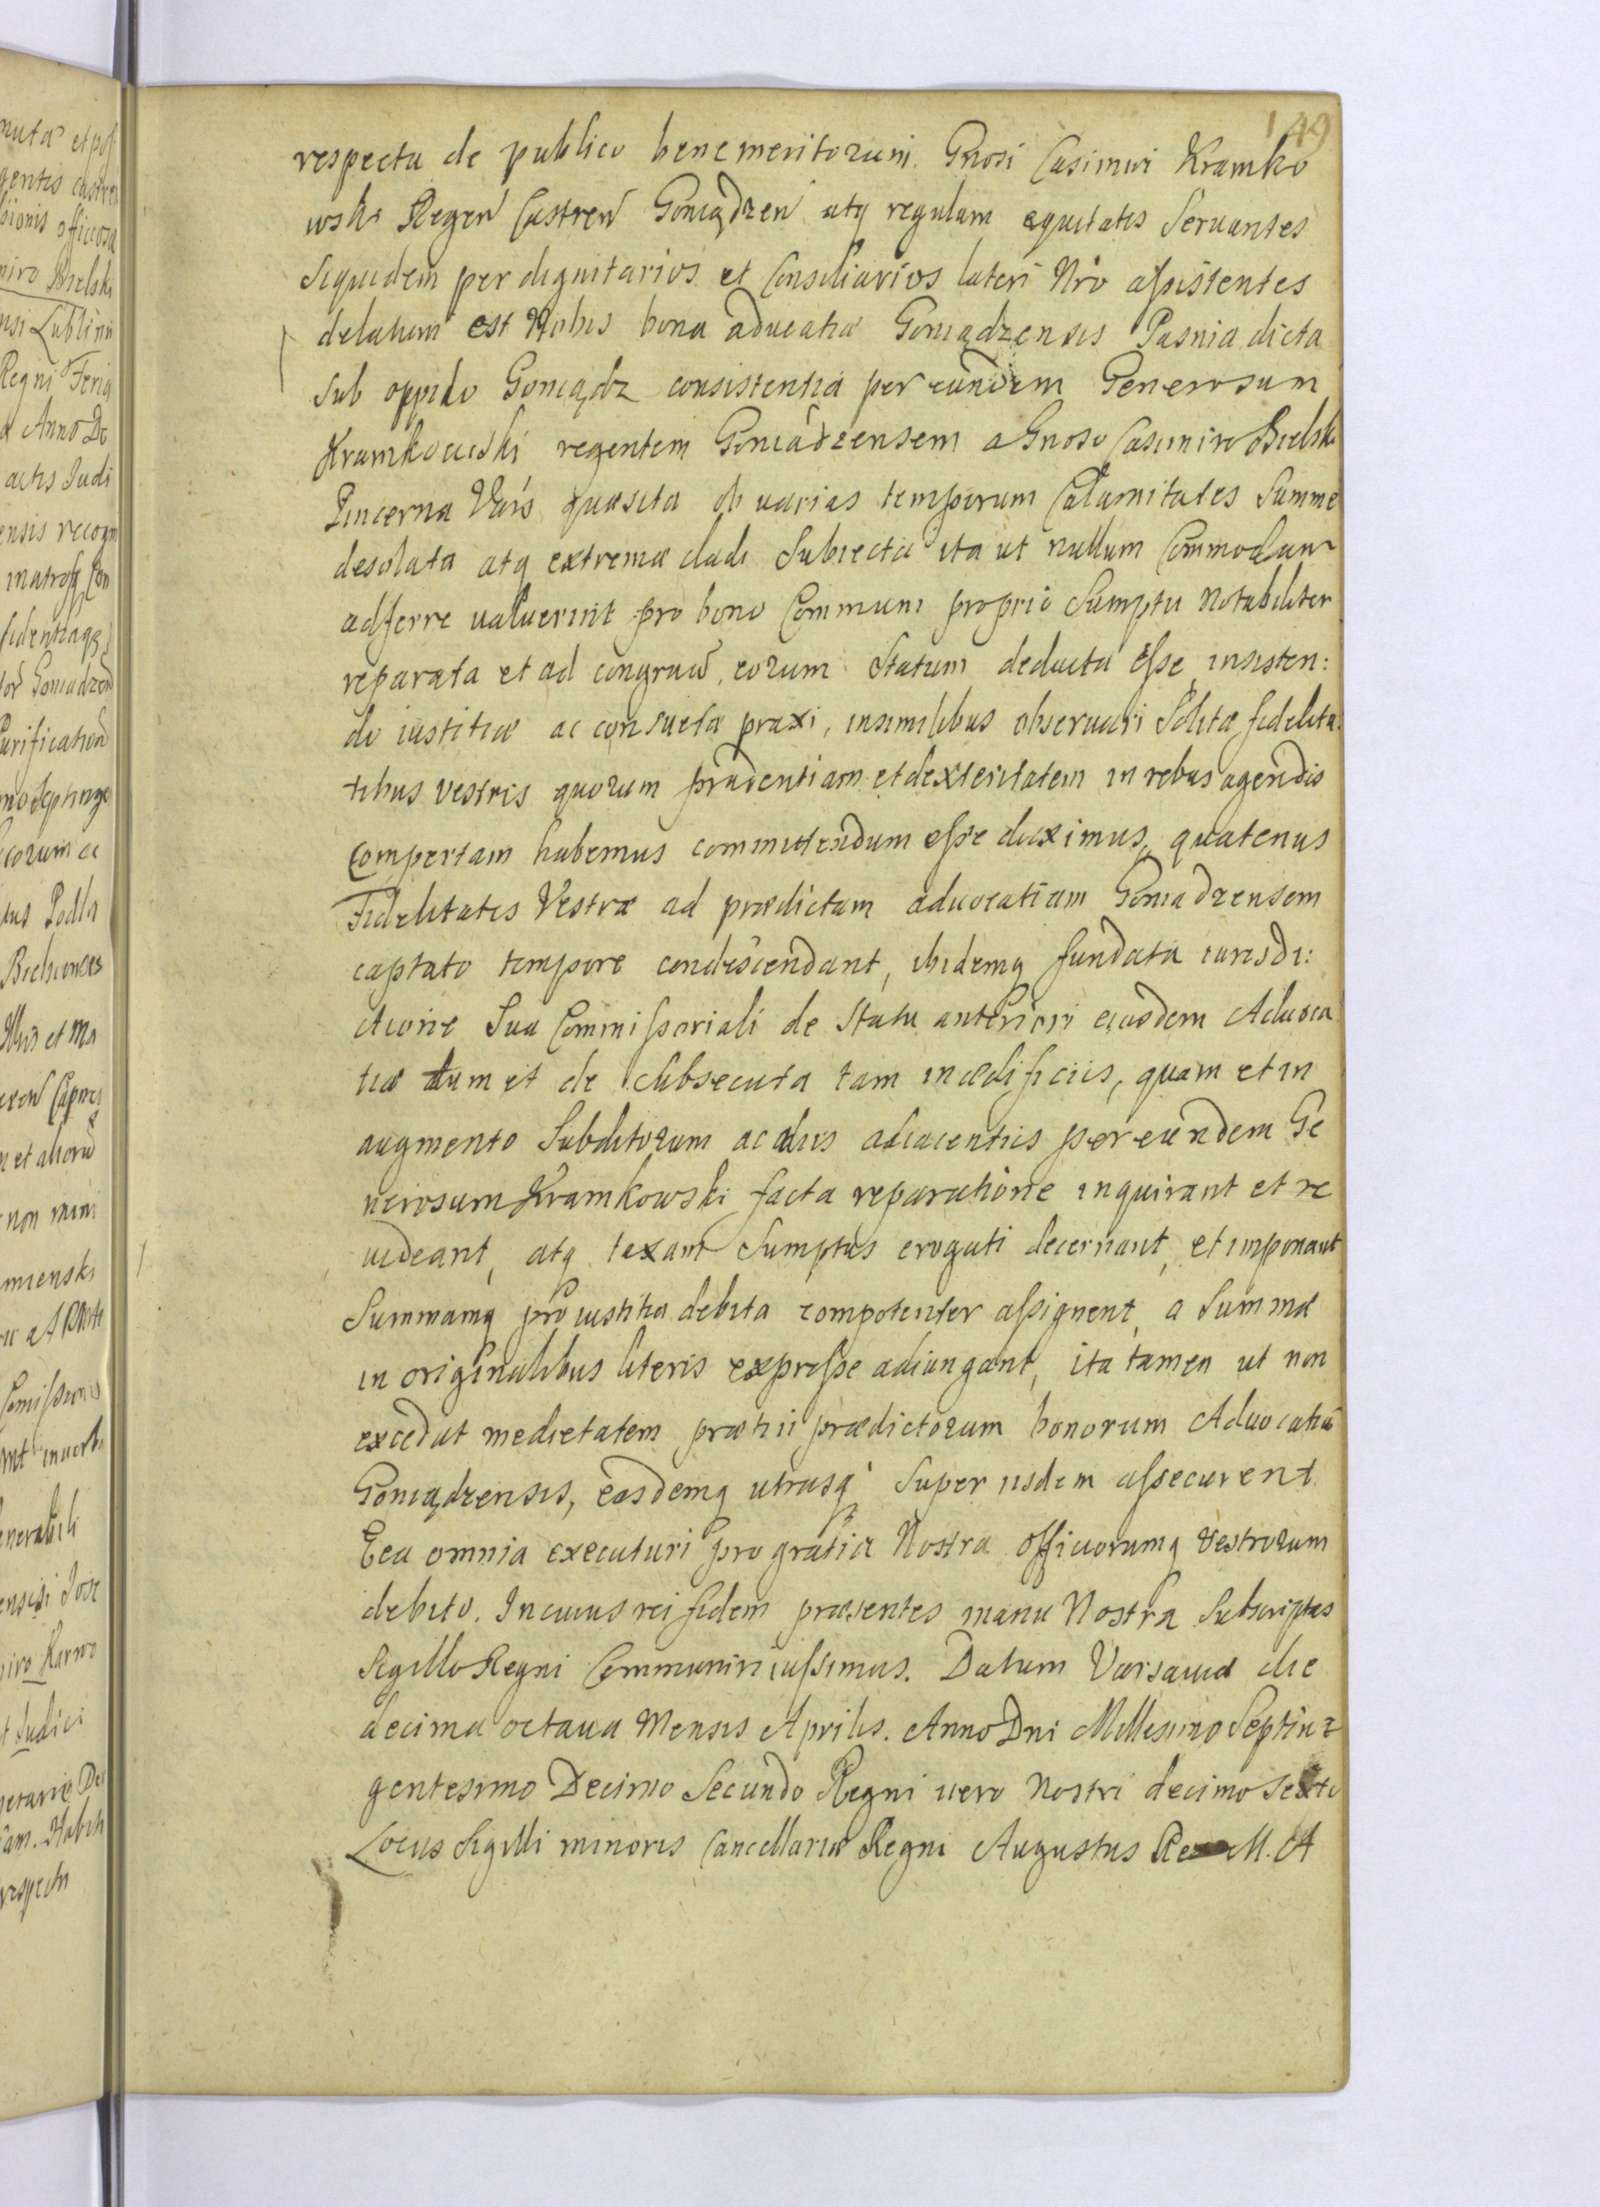 149
respectu de publico benemeritorum Gnosi Casimiri Kramko
wski Regen Castren Goniądzen atq regulam equitatis Seruantes
Siquidem per dignitarios et Consiliarios lateri Nro assistentes
delatum est Nobis bona aduocatiæ Goniądzensis Pasnia dicta
Sub oppido Goniądz consistentia per eundem Generosum
Kramkowski regentem Goniądzensem a Gnoso Casimiro Bielski
Pincerna quæsita ob varias temporum Calamitates Summe
desolata atq extremæ cladi Subiecta ita ut nullum Commodum
adferre valuerint pro bono Communi proprio Sumptu notabiliter
reparata et ad congruu eorum Statum deducta esse, insisten:
do iustitiæ ac consuetæ praxi, insimilibus obseruari Solitæ fidelita:
tibus vestris quorum prudentiam et dexteritatem in rebus agendis
Compertam habemus committendum esse duximus, quatenus
Fidelitates Vestræ ad prædictam aduocatiam Goniadzensem
captato tempore condescendant, ibidemq fundata iurisdi:
ctione Sua Commissoriali de Statu anteriori eiusdem Aduoca
tiæ tum et de Subsecuta tam in ædificiis, quam et in
augmento Subditorum ac aliis adiacentiis per eundem Ge
nerosum Kramkowski facta reparatione inquirant et re
uideant, atq taxam Sumptus erogati decernant, et imponant
Summamq pro iustitia debita competenter assignent, a Summæ
in originalibus literis expresse adiungant, ita tamen ut non
excedat medietatem prætii prædictorum bonorum Aduocatiæ
Goniądzensis, easdemq utrasq Super iisdem assecurent
Eea omnia executuri pro gratia Nostra officiorumq vestrorum
debito. In cuius rei fidem præsentes manu Nostra Subscriptas
Sigillo Regni Communiri iussimus. Datum Varsauiæ die
decima octaua Mensis Aprilis. Anno Dni Millesimo Septin
gentesimo Decimo Secundo Regni vero Nostri decimo Sexto
Locus Sigilli minoris Cancellariæ Regni Augustus Rex M. A